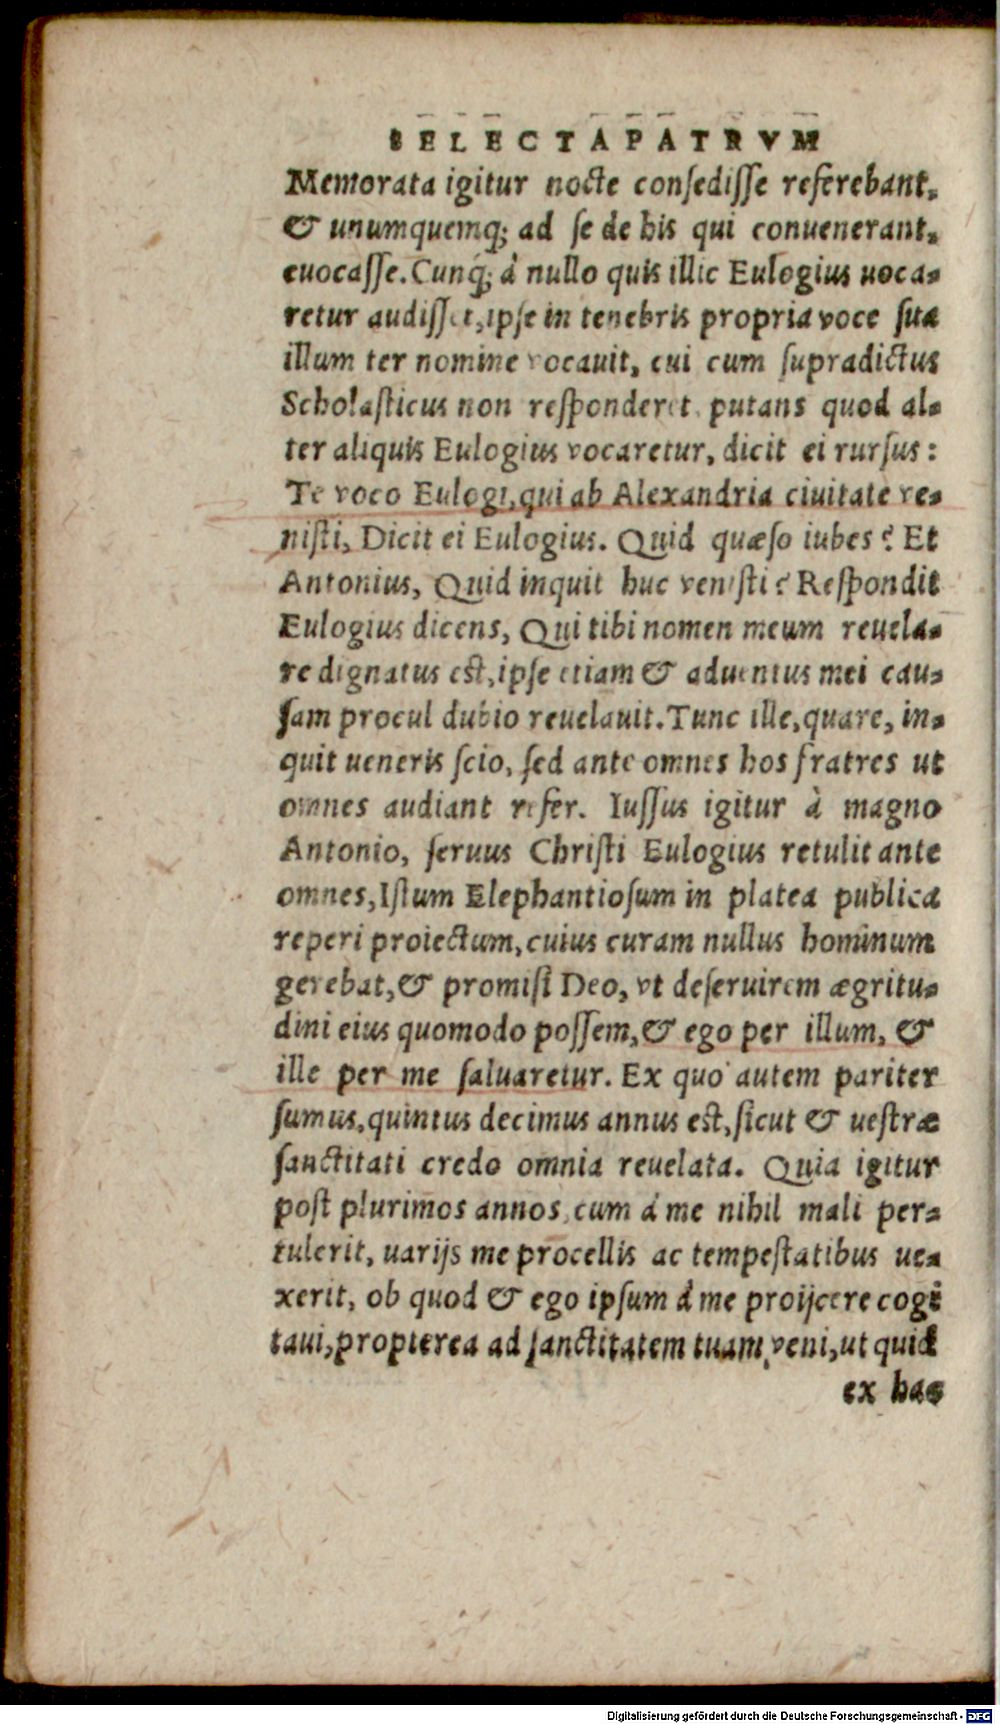 SELECTA PATRVM
Memorata igitur nocte consedisse referebant,
& unumquemq; ad se de his qui convenerant,
euocasse. Cunq; à nullo quis illic Eulogius uoca-
retur audisset, ipse in tenebris propria voce sua
illum ter nomine vocauit, cui cum supradictus
Scholasticus non responderet, putans quod al-
ter aliquis Eulogius vocaretur, dicit ei rursus:
Te voco Eulogi, qui ab Alexandria ciuitate ve-
nisti, Dicit ei Eulogius. Quid quæso iubes? Et
Antonius, Quid inquit huc venisti? Respondit
Eulogius dicens, Qui tibi nomen meum reuela-
re dignatus est, ipse etiam & aduentus mei cau-
sam procul dubio reuelauit. Tunc ille, quare, in-
quit ueneris scio, sed ante omnes hos fratres ut
omnes audiant refer. Iussus igitur à magno
Antonio, seruus Christi Eulogius retulit ante
omnes, Istum Elephantiosum in platea publica
reperi proiectum, cuius curam nullus hominum
gerebat, & promisi Deo, vt deseruirem ægritu-
dini eius quomodo possem, & ego per illum, &
ille per me saluaretur. Ex quo autem pariter
sumus, quintus decimus annus est, sicut & uestræ
sanctitati credo omnia reuelata. Quia igitur
post plurimos annos, cum à me nihil mali per-
tulerit, uarijs me procellis ac tempestatibus ue-
xerit, ob quod & ego ipsum à me proijcere cogi
taui, propterea ad sanctitatem tuam veni, ut quid
ex hac
Digitalisierung gefördert durch die Deutsche Forschungsgemeinschaft - DFG